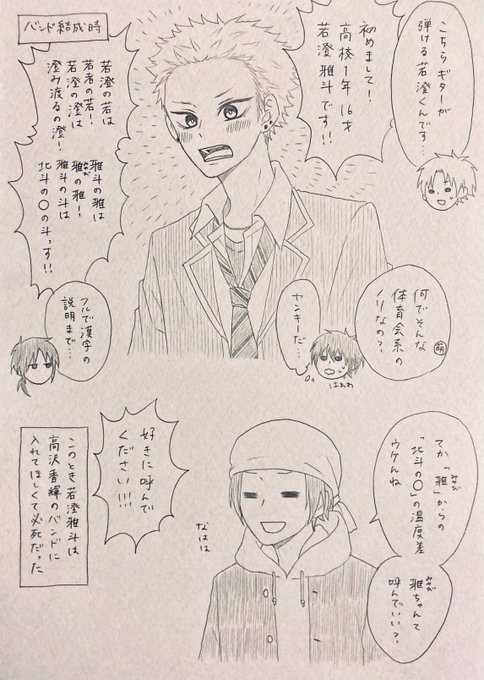 バンド結成時
こちらギターが
弾ける若澄くんです…
初めまして!
高校1年16才
若澄雅斗です!!
若澄の若は
若者の若!
若澄の澄は
澄み渡るの澄!
雅斗の雅は
雅の雅!
みやび
雅斗の斗は
北斗の〇の斗っす!!
何でそんな
体育会系の
ノリなの?
萌
ヤンキーだ…
はわわ
フルで漢字の
説明まで…
てか「雅」からの
みやび
「北斗の〇」の温度差
ウケんね
雅ちゃんて
みやび
呼んでいい?
なはは
好きに呼んで
ください!!!
このとき若澄雅斗は
高沢香輝のバンドに
入れてほしくて必死だった